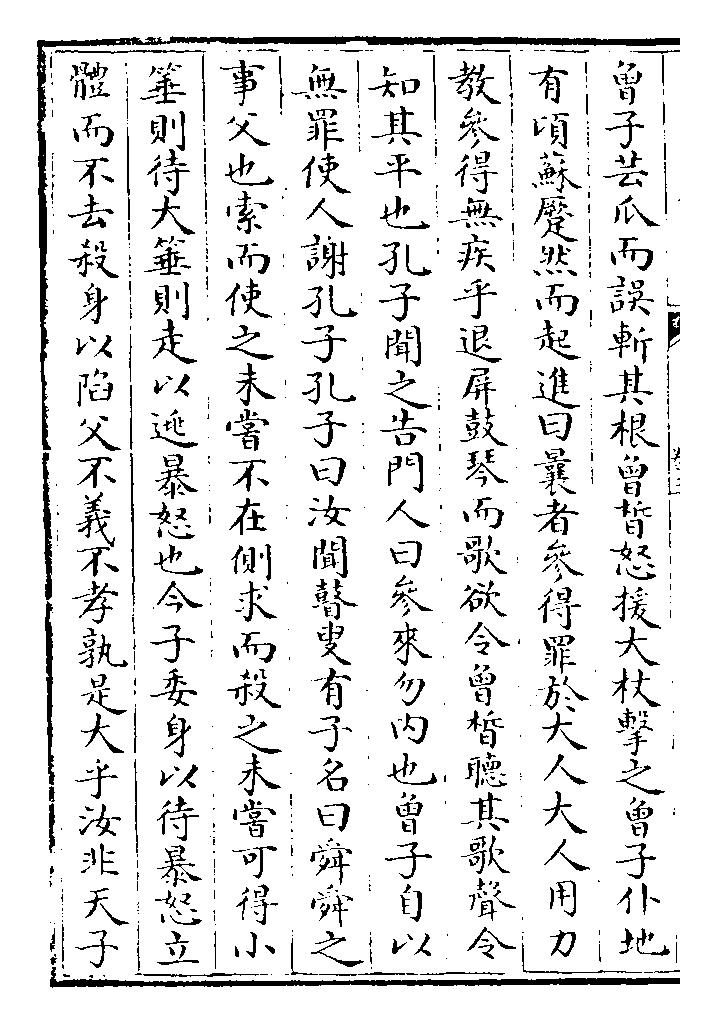 曾子芸瓜而誤斬其根曾晳怒援大杖擊之曾子仆地
有頃蘇蹷然而起進曰曩者參得罪於大人大人用力
教參得無疾乎退屏鼓琴而歌欲令曾晳聽其歌聲令
知其平也孔子聞之告門人曰參來勿内也曾子自以
無罪使人謝孔子孔子曰汝聞瞽叟有子名曰舜舜之
事父也索而使之未嘗不在側求而殺之未嘗可得小
箠則待大箠則走以逃暴怒也今子委身以待暴怒立
體而不去殺身以陷父不義不孝孰是大乎汝非天子